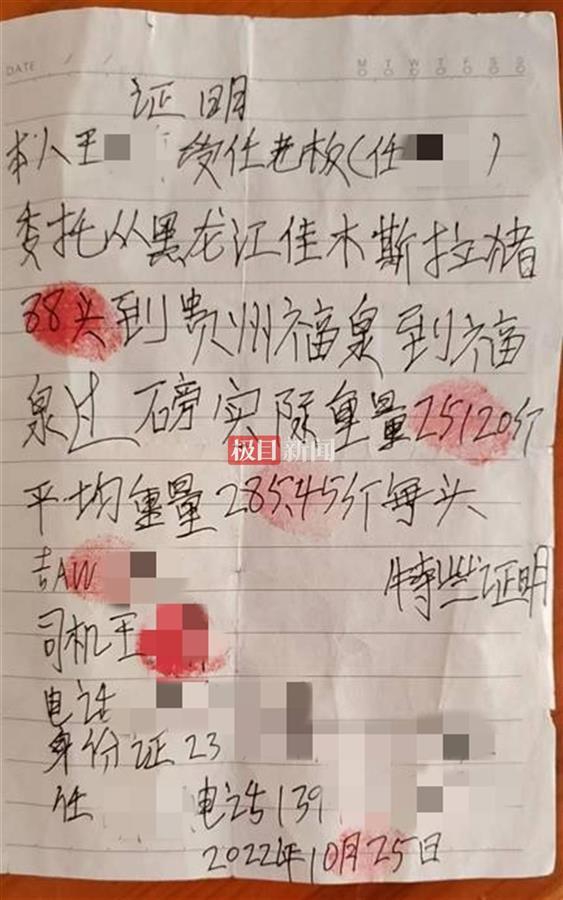 DATE M T W T F S S
证明
本人王 受任老板(任 )
委托从黑龙江佳木斯拉猪
88头到贵州福泉到福
泉过磅实际重量25120斤
极目新闻
平均重量285.45斤每头
吉AW 特些证明
司机王
电话
身份证23
任 电话139
2022年10月25日